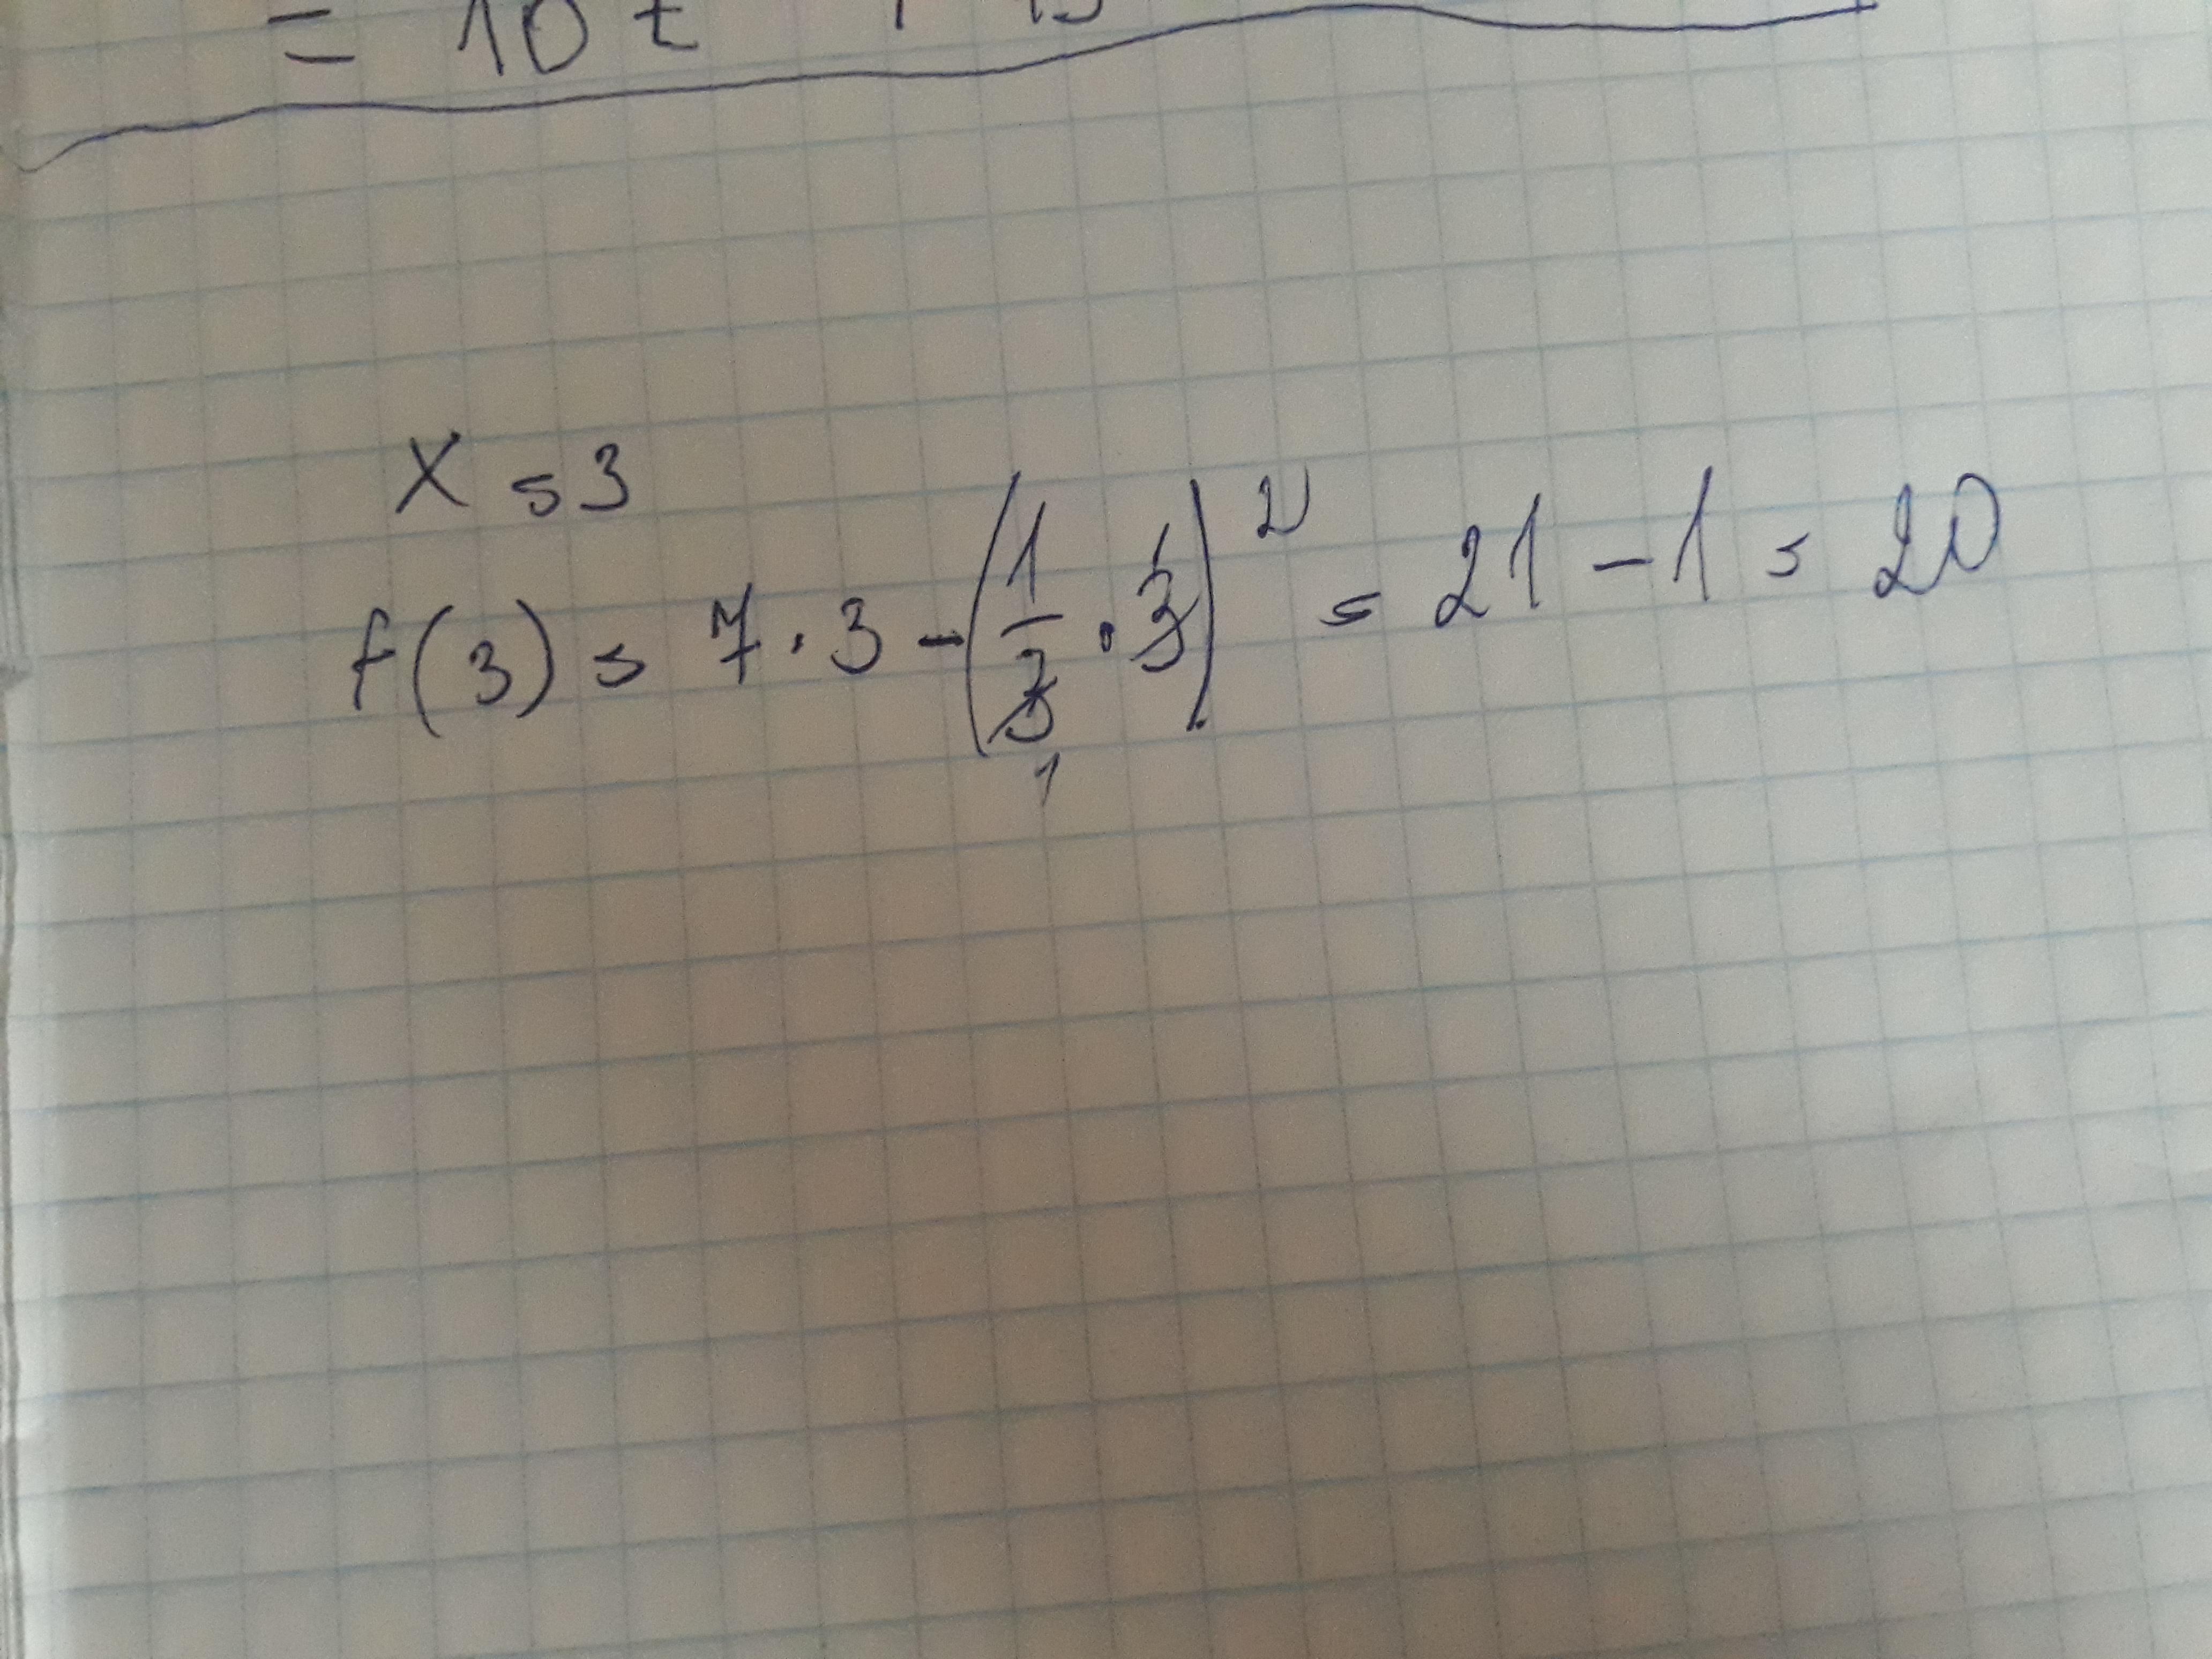 = 10t
x = 3
f(3) = 7 · 3 - (1/3 · 3)² = 21 - 1 = 20
1
1